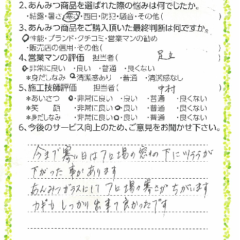 2、あんみつ商品を選ばれた際の悩みは何でしたか。
・結露・暑さ・寒さ・西日・防災・騒音・その他（　　）
3、あんみつ商品をご購入頂いた最終判断は何ですか。
価格・ブランド・クチコミ・営業マンの勧め
・販売店の信用・その他（　　）
4、営業マンの評価 担当者（　　）
非常に良い ・良い ・普通 ・良くない
・身だしなみ 清潔感あり ・普通 ・清潔感なし
5、施工技師評価 担当者（ 中村 ）
＊あいさつ ・非常に良い ・良い ・普通 ・良くない
＊笑顔 ・非常に良い ・良い ・普通 ・良くない
＊身だしなみ ・非常に良い ・良い ・普通 ・良くない
6、今後のサービス向上のため、ご意見をお聞かせ下さい。
今まで寒い日はフロ場の窓の下にツララが
下がった事があります
あんみつガラスにして フロ場の寒さがちがいます
カギもしっかり出来て良かったです